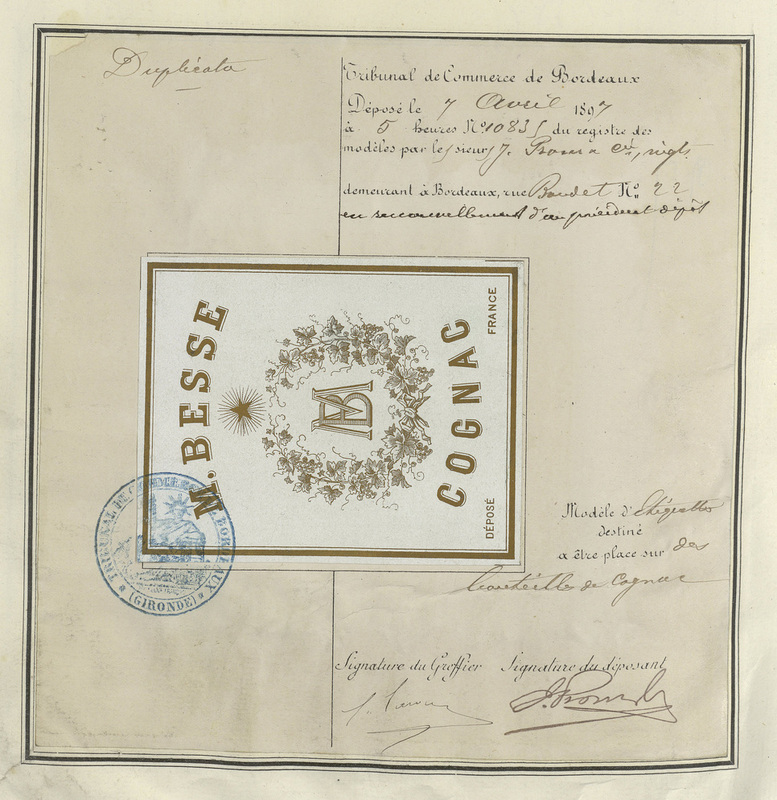 Duplicata
Tribunal de Commerce de Bordeaux
Déposé le 7 Avril 1897
à 5 heures No 10835 du registre des
modèles par le sieur J. & Cie, négts.
demeurant à Bordeaux, rue Baudet No 22
en renouvellement d'un précédent dépôt
M. BESSE
MB
COGNAC
DÉPOSÉ
FRANCE
TRIBUNAL DE COMMERCE DE BORDEAUX
(GIRONDE)
Modèle d'Etiquette
destiné
a être place sur des
bouteilles de Cognac
Signature du Greffier Signature du déposant